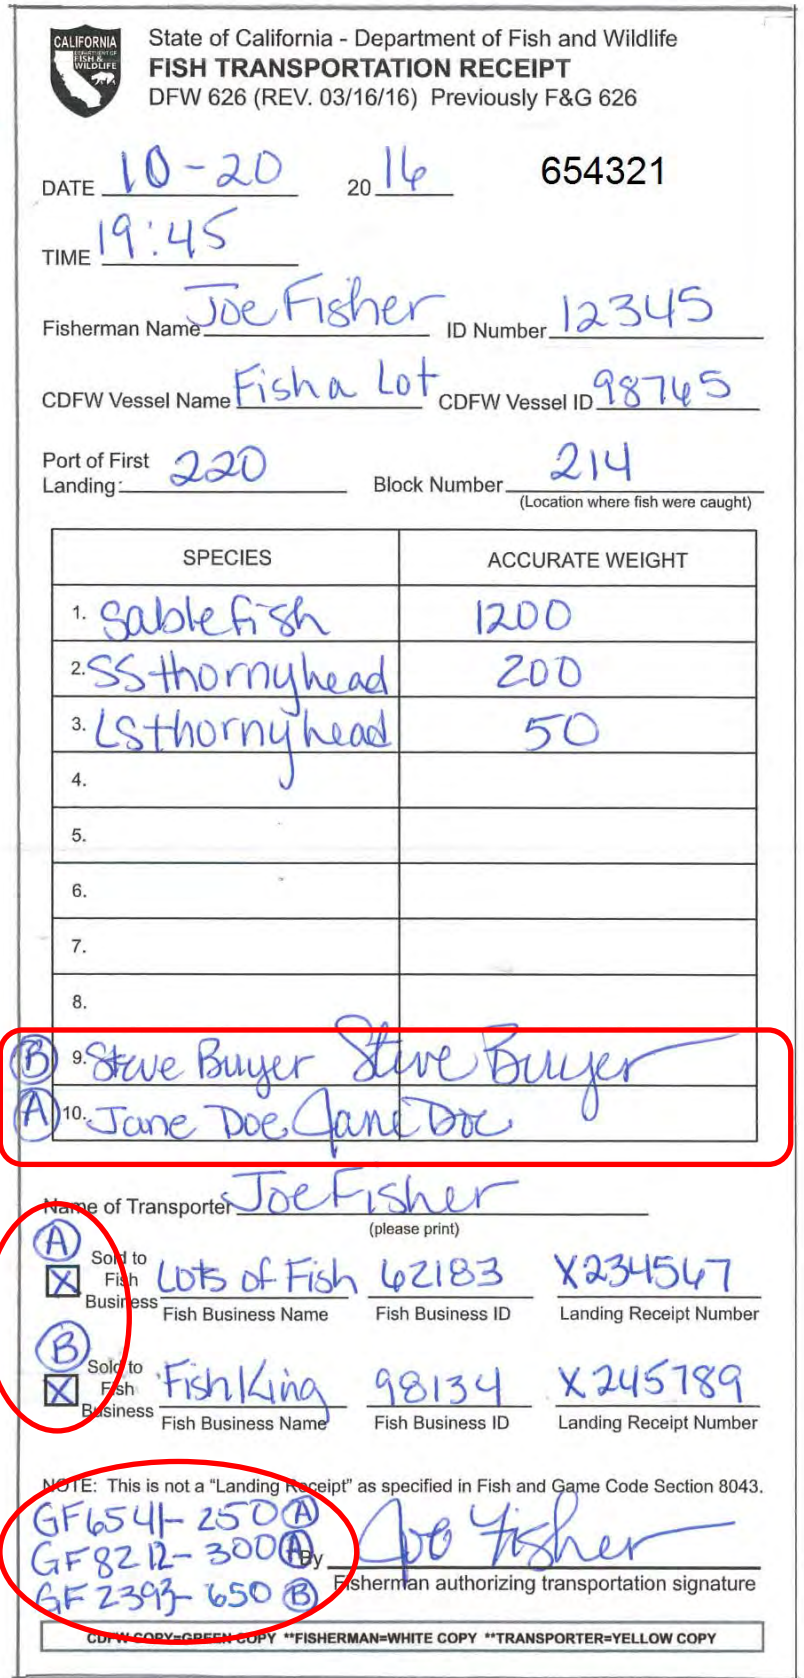 CALIFORNIA
DEPARTMENT OF
FISH &
WILDLIFE
State of California - Department of Fish and Wildlife
FISH TRANSPORTATION RECEIPT
DFW 626 (REV. 03/16/16) Previously F&G 626
DATE 10-20 2016 654321
TIME 19:45
Fisherman Name Joe Fisher ID Number 12345
CDFW Vessel Name Fish a Lot CDFW Vessel ID 98765
Port of First Landing: 220 Block Number 214
(Location where fish were caught)
SPECIES ACCURATE WEIGHT
1. Sablefish 1200
2. SSthornyhead 200
3. LSthornyhead 50
4.
5.
6.
7.
8.
B 9. Steve Buyer Steve Buyer
A 10. Jane Doe Jane Doe
Name of Transporter Joe Fisher
(please print)
A
X Sold to Fish Business Lots of Fish 62183 X234567
Fish Business Name Fish Business ID Landing Receipt Number
B
X Sold to Fish Business Fish King 98134 X245789
Fish Business Name Fish Business ID Landing Receipt Number
NOTE: This is not a "Landing Receipt" as specified in Fish and Game Code Section 8043.
GF6541- 250 A
GF8212- 300 A By Joe Fisher
GF2393- 650 B Fisherman authorizing transportation signature
CDFW COPY=GREEN COPY **FISHERMAN=WHITE COPY **TRANSPORTER=YELLOW COPY